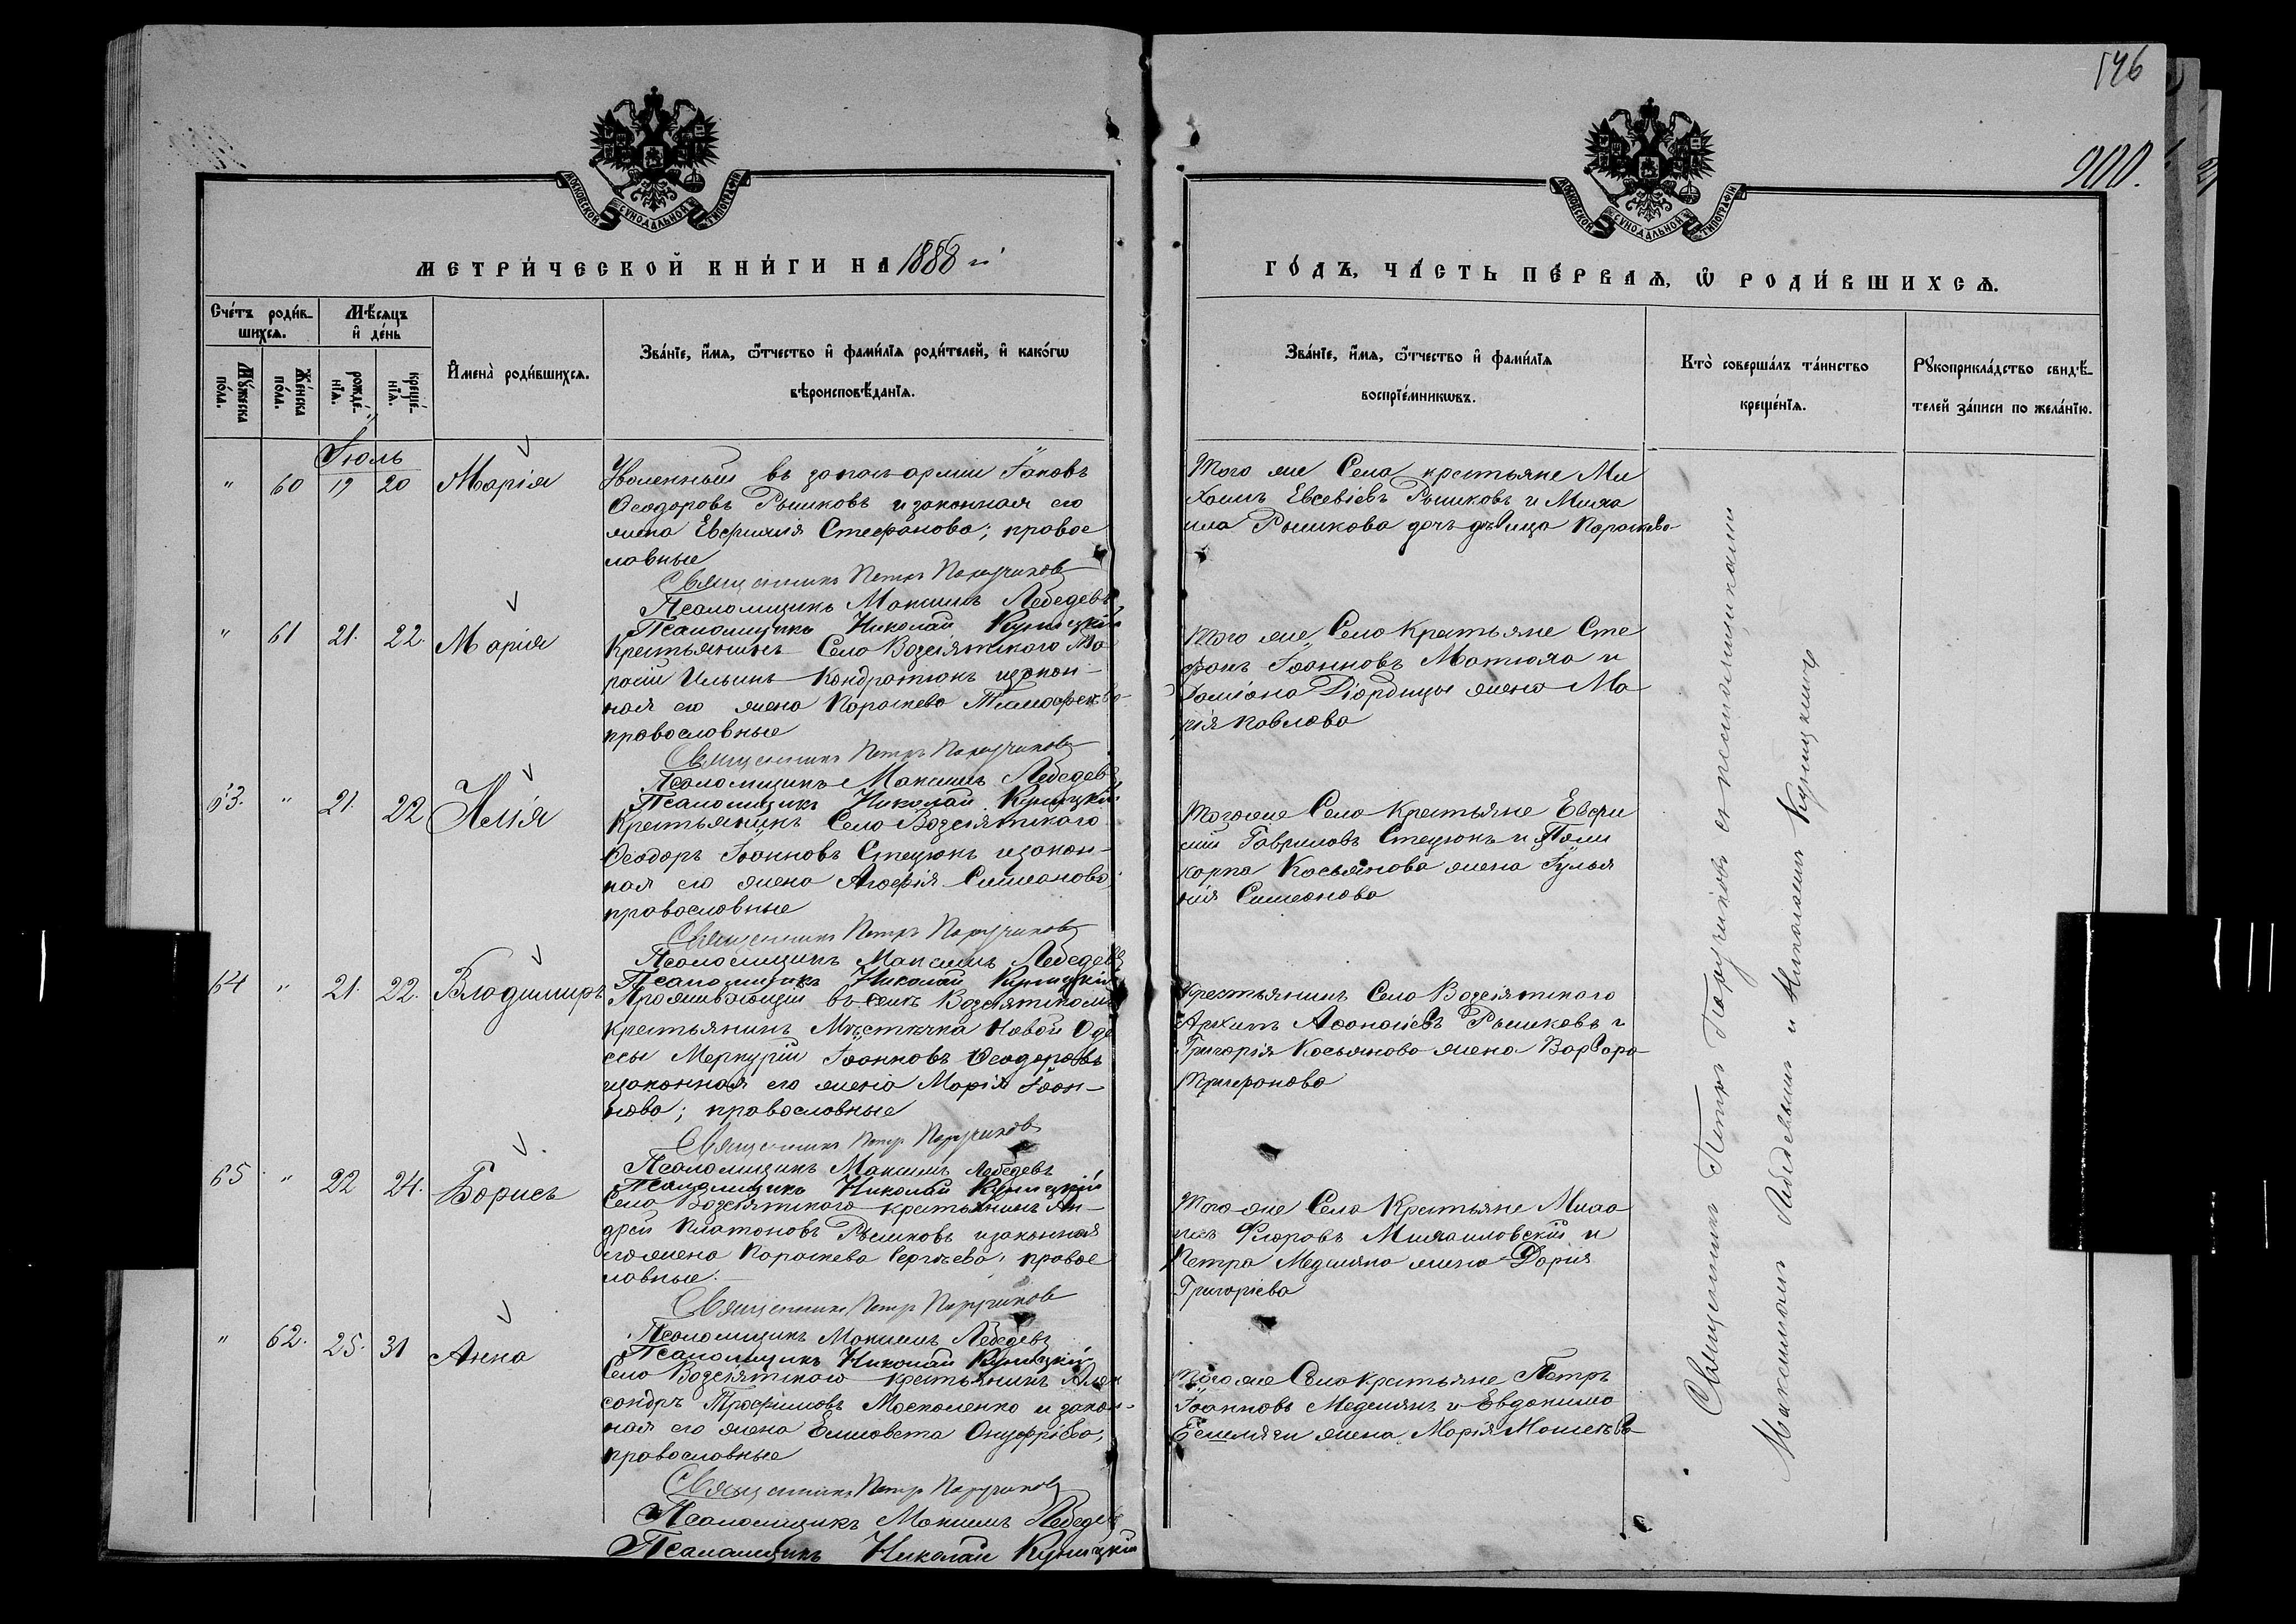 146
900.
МОСКОВСКОЙ СѴНОДАЛЬНОЙ ТИПОГРАФІИ
МОСКОВСКОЙ СѴНОДАЛЬНОЙ ТИПОГРАФІИ
МЕТРИ́ЧЕСКОЙ КНИ́ГИ НА 1888 й
ГО́ДЪ, ЧА́СТЬ ПЕ́РВАѦ, Ѡ҆ РОДИ́ВШИХСѦ.
Сче́тъ роди́в-
шихсѧ.
Мѣ́сѧцъ
и҆ де́нь
Мꙋ́жеска
по́ла.
Же́нска
по́ла.
рожде́-
нїѧ.
креще́-
нїѧ.
И҆мена̀ роди́вшихсѧ.
Зва́нїе, и҆́мѧ, ѻ҆́тчество и҆ фами́лїѧ роди́телей, и҆ како́гѡ
вѣроисповѣ́данїѧ.
Зва́нїе, и҆́мѧ, ѻ҆́тчество и҆ фами́лїѧ
воспрїе́мникѡвъ.
Кто̀ соверша́лъ та́инство
креще́нїѧ.
Рꙋкоприкла́дство свидѣ́-
телей за́писи по жела́нїю.
Іюль
" 60 19 20 Марія
Уволенный въ запасъ арміи Іаковъ
Ѳеодоровъ Рышковъ и законная его
жена Евфимія Стефанова; правос
лавные
Священникъ Петръ Поручиковъ
Псаломщикъ Максимъ Лебедевъ
Псаломщикъ Николай Куницкій
Того же Села крестьяне Ми
хаилъ Евсевіевъ Рышковъ и Миха
ила Рышкова дочь дѣвица Параскева
" 61 21. 22. Марія
Крестьянинъ Села Возсіятского
Ильинъ Кондратюкъ и закон-
ная его жена Параскева Тимофеева
православные
Священникъ Петръ Поручиковъ
Псаломщикъ Максимъ Лебедевъ
Псаломщикъ Николай Куницкій
Того же Села Крестьяне Сте
фанъ Іоанновъ и
жена Ма
рія Павлова
63. " 21. 22
Крестьянинъ Села Возсіятского
Ѳеодоръ Іоанновъ Стецюкъ и закон-
ная его жена Агафія Симеонова;
православные
Священникъ Петръ Поручиковъ
Псаломщикъ Максимъ Лебедевъ
Псаломщикъ Николай Куницкій
Того же Села Крестьяне Евфи
мій Гавриловъ Стецюкъ и Поли
карпа Косьянова жена Іулья
нія Симеонова
64 " 21. 22. Владимиръ
Проживающій въ селѣ Возсіятскомъ
крестьянинъ Мѣстечка Новой Оде
ссы Меркурій Іоанновъ Ѳеодоровъ
и законная его жена Марія Іоан-
нова; православные
Священникъ Петръ Поручиковъ
Псаломщикъ Максимъ Лебедевъ
Псаломщикъ Николай Куницкій
Крестьянинъ Села Возсіятского
Архипъ Аѳанасіевъ Рышковъ и
Григорія Косьянова жена Варвара
Трифонова
65 " 22 24. Борисъ
Села Возсіятского крестьянинъ Ан-
дрей Платоновъ Рышковъ и законная
его жена Параскева Сергѣева; правос
лавные.
Священникъ Петръ Поручиковъ
Псаломщикъ Максимъ Лебедевъ
Псаломщикъ Николай Куницкій
Того же Села Крестьяне Миха
илъ Флоровъ Михаиловскій и
Петра Медяника жена Дарія
Григоріева
" 62. 25. 31 Анна
Села Возсіятского крестьянинъ Алек
сандръ Трофимовъ Москаленко и закон-
ная его жена Елисавета Онуфріева;
православные
Священникъ Петръ Поручиковъ
Псаломщикъ Максимъ Лебедевъ
Псаломщикъ Николай Куницкій
Того же Села крестьяне Петръ
Іоанновъ и Евдокима
жена Марія Моисеева
Священникъ Петръ Поручиковъ съ псаломщиками
Максимомъ Лебедевымъ и Николаемъ Куницкимъ